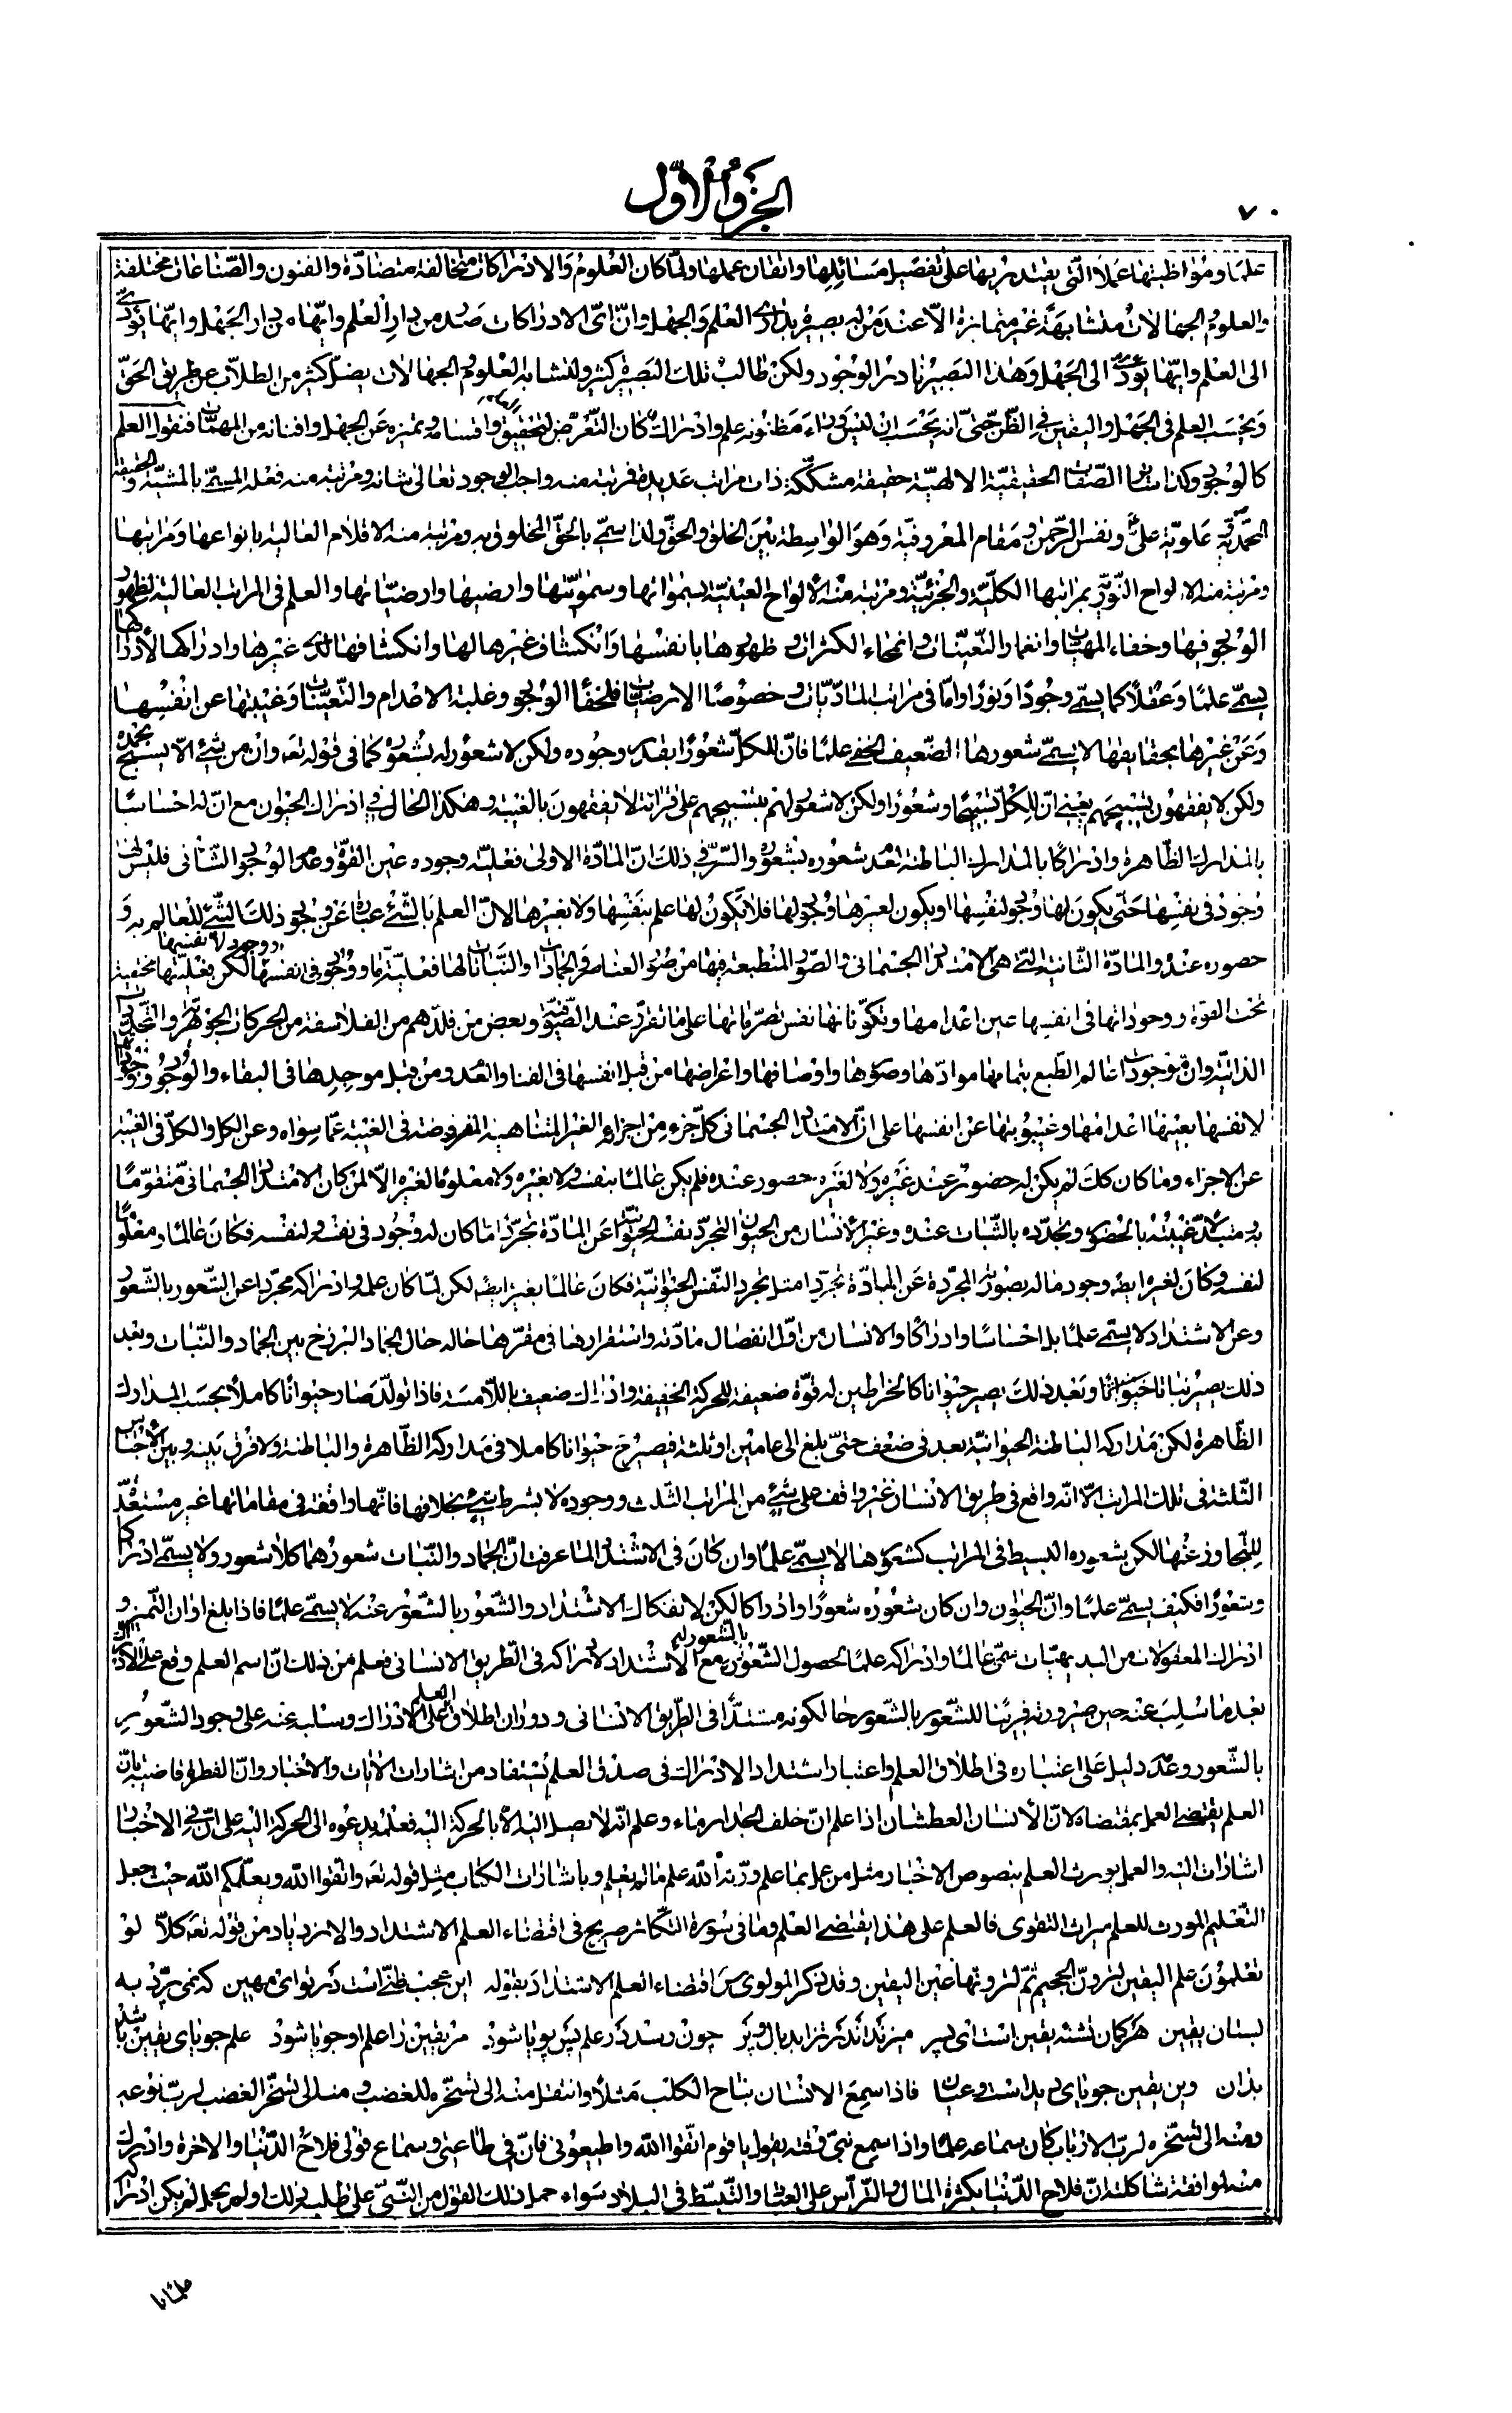 ٧٠
الجزو الاوّل
علما ومواظبتها عملا الّتى يقتدر بها على تفصيل مسائلها واتقان عملها ولمّا كان العلوم والادراكات متخالفة متضادّة والفنون والصّناعات مختلفة
والعلوم والجهالات متشابهة غير متمايزة الّا عند من له بصيرة بدارى العلم والجهل وانّ اىّ الادراكات صدر من دار العلم وايّها من دار الجهل وايّها يؤدّى
الى العلم وايّها يؤدّى الى الجهل وهذا البصير نادر الوجود ولكن طالب تلك البصيرة كثير ولتشابه العلوم والجهالات يضلّ كثير من الطلّاب عن طريق الحقّ
ويحسب العلم فى الجهل واليقين فى الظّنّ حتّى انّه يحسب ان ليس وراء مظنونه علم وادراك كان التّعرّض لتحقيق واقسامه وتميزه عن الجهل وافنائه من المهمّات فنقول العلم
كالوجود وكذا سائر الصّفات الحقيقيّة الالهيّة حقيقة مشكّكة ذات مراتب عديدة فمرتبة منه واجب الوجود تعالى شأنه ومرتبة منه فعله المسمّى بالمشيّة والحقيقة
المحمّديّة وعلويّة علىّ ونفس الرّحمن ومقام المعروفيّة وهو الواسطة بين الخلق والحقّ ولذا سمّى بالحقّ المخلوق به ومرتبة منه الاقلام العالية بانواعها ومراتبها
ومرتبة منه الالواح النّوريّة بمراتبها الكلّيّة والجزئيّة ومرتبة منه الالواح العينيّة بسمواتها وسماويّاتها وارضيها وارضيّاتها والعلم فى المراتب العالية لظهور
الوجود فيها وخفاء المهيّات وانغمار التّعيّنات وانمحاء الكثرات وظهورها بانفسها وانكشاف غيرها لها وانكشافها لدى غيرها وادراكها لادراكها
يسمّى علما وعقلا كما يسمّى وجودا ونورا وامّا فى مراتب المادّيّات وخصوصا الارضيّات فلخفاء الوجود وغلبة الاعدام والتّعيّنات وغيبتها عن انفسها
وعن غيرها بحقايقها لا يسمّى شعورها الضّعيف الخفى علما فانّ للكلّ شعورا بقدر وجوده ولكن لا شعور له بشعوره كما فى قوله تعه وان من شئ الّا يسبّح بحمده
ولكن لا يفقهون تسبيحهم يعنى انّ للكلّ تسبيحا وشعورا ولكن لا شعور لهم بتسبيحهم على قرائة لا يفقهون بالغيبة وهكذا الحال فى ادراك الحيوان مع انّ له احساسا
بالمدارك الظّاهرة وادراكا بالمدارك الباطنة لعدم شعوره بشعوره والسّرّ فى ذلك انّ المادّة الاولى فعليّة وجوده عين القوّة وعدم الوجود والثّانى فليس لها
وجود فى نفسها حتّى يكون لها وجود لنفسها او يكون لغيرها وجود لها فلا يكون لها علم بنفسها ولا بغيرها لانّ العلم بالشّئ عبارة عن وجود ذلك الشّئ للعالم به و
حضوره عنده والمادّة الثّانية الّتى هى الامتداد الجسمانى والصّور المنطبعة فيها من صور العناصر والجمادات والنّبات لها فعليّة ما ووجود فى انفسها ووجود لانفسها لكن فعليّتها مختفية
تحت القوّة ووجوداتها فى انفسها عين اعدامها وتكوّناتها نفس تصرّماتها على ما تقرّر عند الصّوفيّة وبعض من قلّدهم من الفلاسفة من الحركات الجوهريّة والتّجدّدات
الذاتيّة وانّ موجودات عالم الطّبع بتمامها موادّها وصورها واوصافها واعراضها من قبل انفسها فى الفناء والعدم ومن قبل موجدها فى البقاء والوجود ووجوداتها
لانفسها بعينها اعدامها وغيبوبتها عن انفسها على انّ الامتداد الجسمانى كلّ جزء من اجزائه الغير المتناهية المفروضة فى الغيبة عمّا سواه وعن الكلّ والكلّ فى الغيبة
عن الاجزاء وما كان كك لم يكن له حضور عند غيره ولا لغيره حضور عنده فلم يكن عالما بنفسه ولا بغيره ولا معلوما لغيره الّا لمن كان الامتداد الجسمانى متقوّما
به متبدّلا غيبته بالحضور وتجدّده بالثّبات عنده وغير الانسان من الحيوان لتجرّد نفسه الحيوانيّة عن المادّة تجرّدا ما كان له وجود فى نفسه ولنفسه فكان عالما ومعلوما
لنفسه وكان لغيره ايضا وجود ما له بصورته المجرّدة عن المادّة تجرّدا مثل تجرد النّفس الحيوانيّة فكان عالما بغيره ايضا لكن لمّا كان علمه وادراكه مجرّدا عن الشّعور بالشّعور
وعن الاشتداد لا يسمّى علما بل احساسا وادراكا والانسان من اوّل انفصال مادّته واستقرارها فى مقرّها حاله حال الجماد البرزخ بين الجماد والنّبات وبعد
ذلك يصير نباتا وبعد ذلك يصير حيوانا كالخراطين له قوّة ضعيفة للحركة الخفيفة وادراك ضعيف باللّامسة فاذا تولّد صار حيوانا كاملا بحسب المدارك
الظّاهرة لكن مداركه الباطنة الحيوانيّة بعد فى ضعف حتّى بلغ الى عامين او ثلثة فيصير ح حيوانا كاملا فى مداركه الظّاهرة والباطنة ولا فرق بينه وبين الاجناس
الثّلثة فى تلك المراتب الّا انّه واقع فى طريق الانسان غير واقف على شئ من المراتب الثّلث ووجوده لا بشرط شئ بخلافها فانّها واقفة فى مقاماتها غير مستعدّة
للتّجاوز عنها لكن شعوره البسيط فى المراتب كشعورها لا يسمّى علما وان كان فى الاشتداد لما عرفت انّ الجماد والنّبات شعورهما كلا شعور ولا يسمّى ادراكا
وشعورا فكيف يسمّى علما وانّ الحيوان وان كان شعوره شعورا وادراكا لكن لانفكاك الاشتداد والشّعور بالشّعور عنه لا يسمّى علما فاذا بلغ اوان التّميز و
ادراك المعقولات من البديهيّات سمّى عالما وادراكه علما لحصول الشّعور بالشّعور له مع الاشتداد لادراكه فى الطّريق الانسانى فعلم من ذلك انّ اسم العلم وقع على الادراك
بعد ما سلب عنه حين صيرورته قرينا للشّعور بالشّعور حالكونه مشتدّا فى الطّريق الانسانى ودوران اطلاق العلم على الادراك وسلبه عنه على وجود الشّعور
بالشّعور وعدمه دليل على اعتباره فى اطلاق العلم واعتبار اشتداد الادراك فى صدق العلم يستفاد من اشارات الآيات والاخبار وانّ الفطرة قاضية بانّ
العلم يقتضى العمل بمقتضاه لانّ الانسان العطشان اذا علم انّ خلف الجدار ماء وعلم انّه لا يصل اليه الّا بالحركة اليه فعلمه يدعوه الى الحركة اليه على انّ فى الاخبار
اشارات اليه والعمل يورث العلم بنصوص الاخبار مثل من عمل بما علم ورّثه الله علم ما لم يعلم وباشارات الكتاب مثل قوله تعه واتّقوا الله ويعلّمكم الله حيث جعل
التّعليم المورث للعلم ميراث التقوى فالعلم على هذا يقتضى العلم وما فى سورة التّكاثر صريح فى اقتضاء العلم الاشتداد والازدياد من قوله تعه كلّا لو
تعلمون علم اليقين لترونّ الجحيم ثمّ لترونّها عين اليقين وقد ذكر المولوى س اقتضاء العلم الاشتداد بقوله اين عجب ظنّى است در تو اى مهين كه نمى پرّد به
بستان يقين هر گمان تشنه يقين است اى پسر ميزند اندر تزايد بال و پر چون رسد در علم پس پويا شود مر يقين را علم او جويا شود علم جوياى يقين باشد
بدان وين يقين جوياى ديد است و عيان فاذا سمع الانسان نباح الكلب مثلا وانتقل منه الى تسخّره للغضب ومنه الى تسخّر الغضب لربّ نوعه
ومنه الى تسخّره لربّ الارباب كان سماعه علما واذا سمع نبىّ وقته يقول يا قوم اتّقوا الله واطيعونى فانّ فى طاعتى وسماع قولى فلاح الدّنيا والاخرة وادرك
منه لموافقة شاكلته انّ فلاح الدّنيا بكثرة المال والتّرأّس على العباد والتّبسّط فى البلاد سواء حمل ذلك القول من النّبىّ على طلب ذلك او لم يحمل لم يكن ادراكه
علما